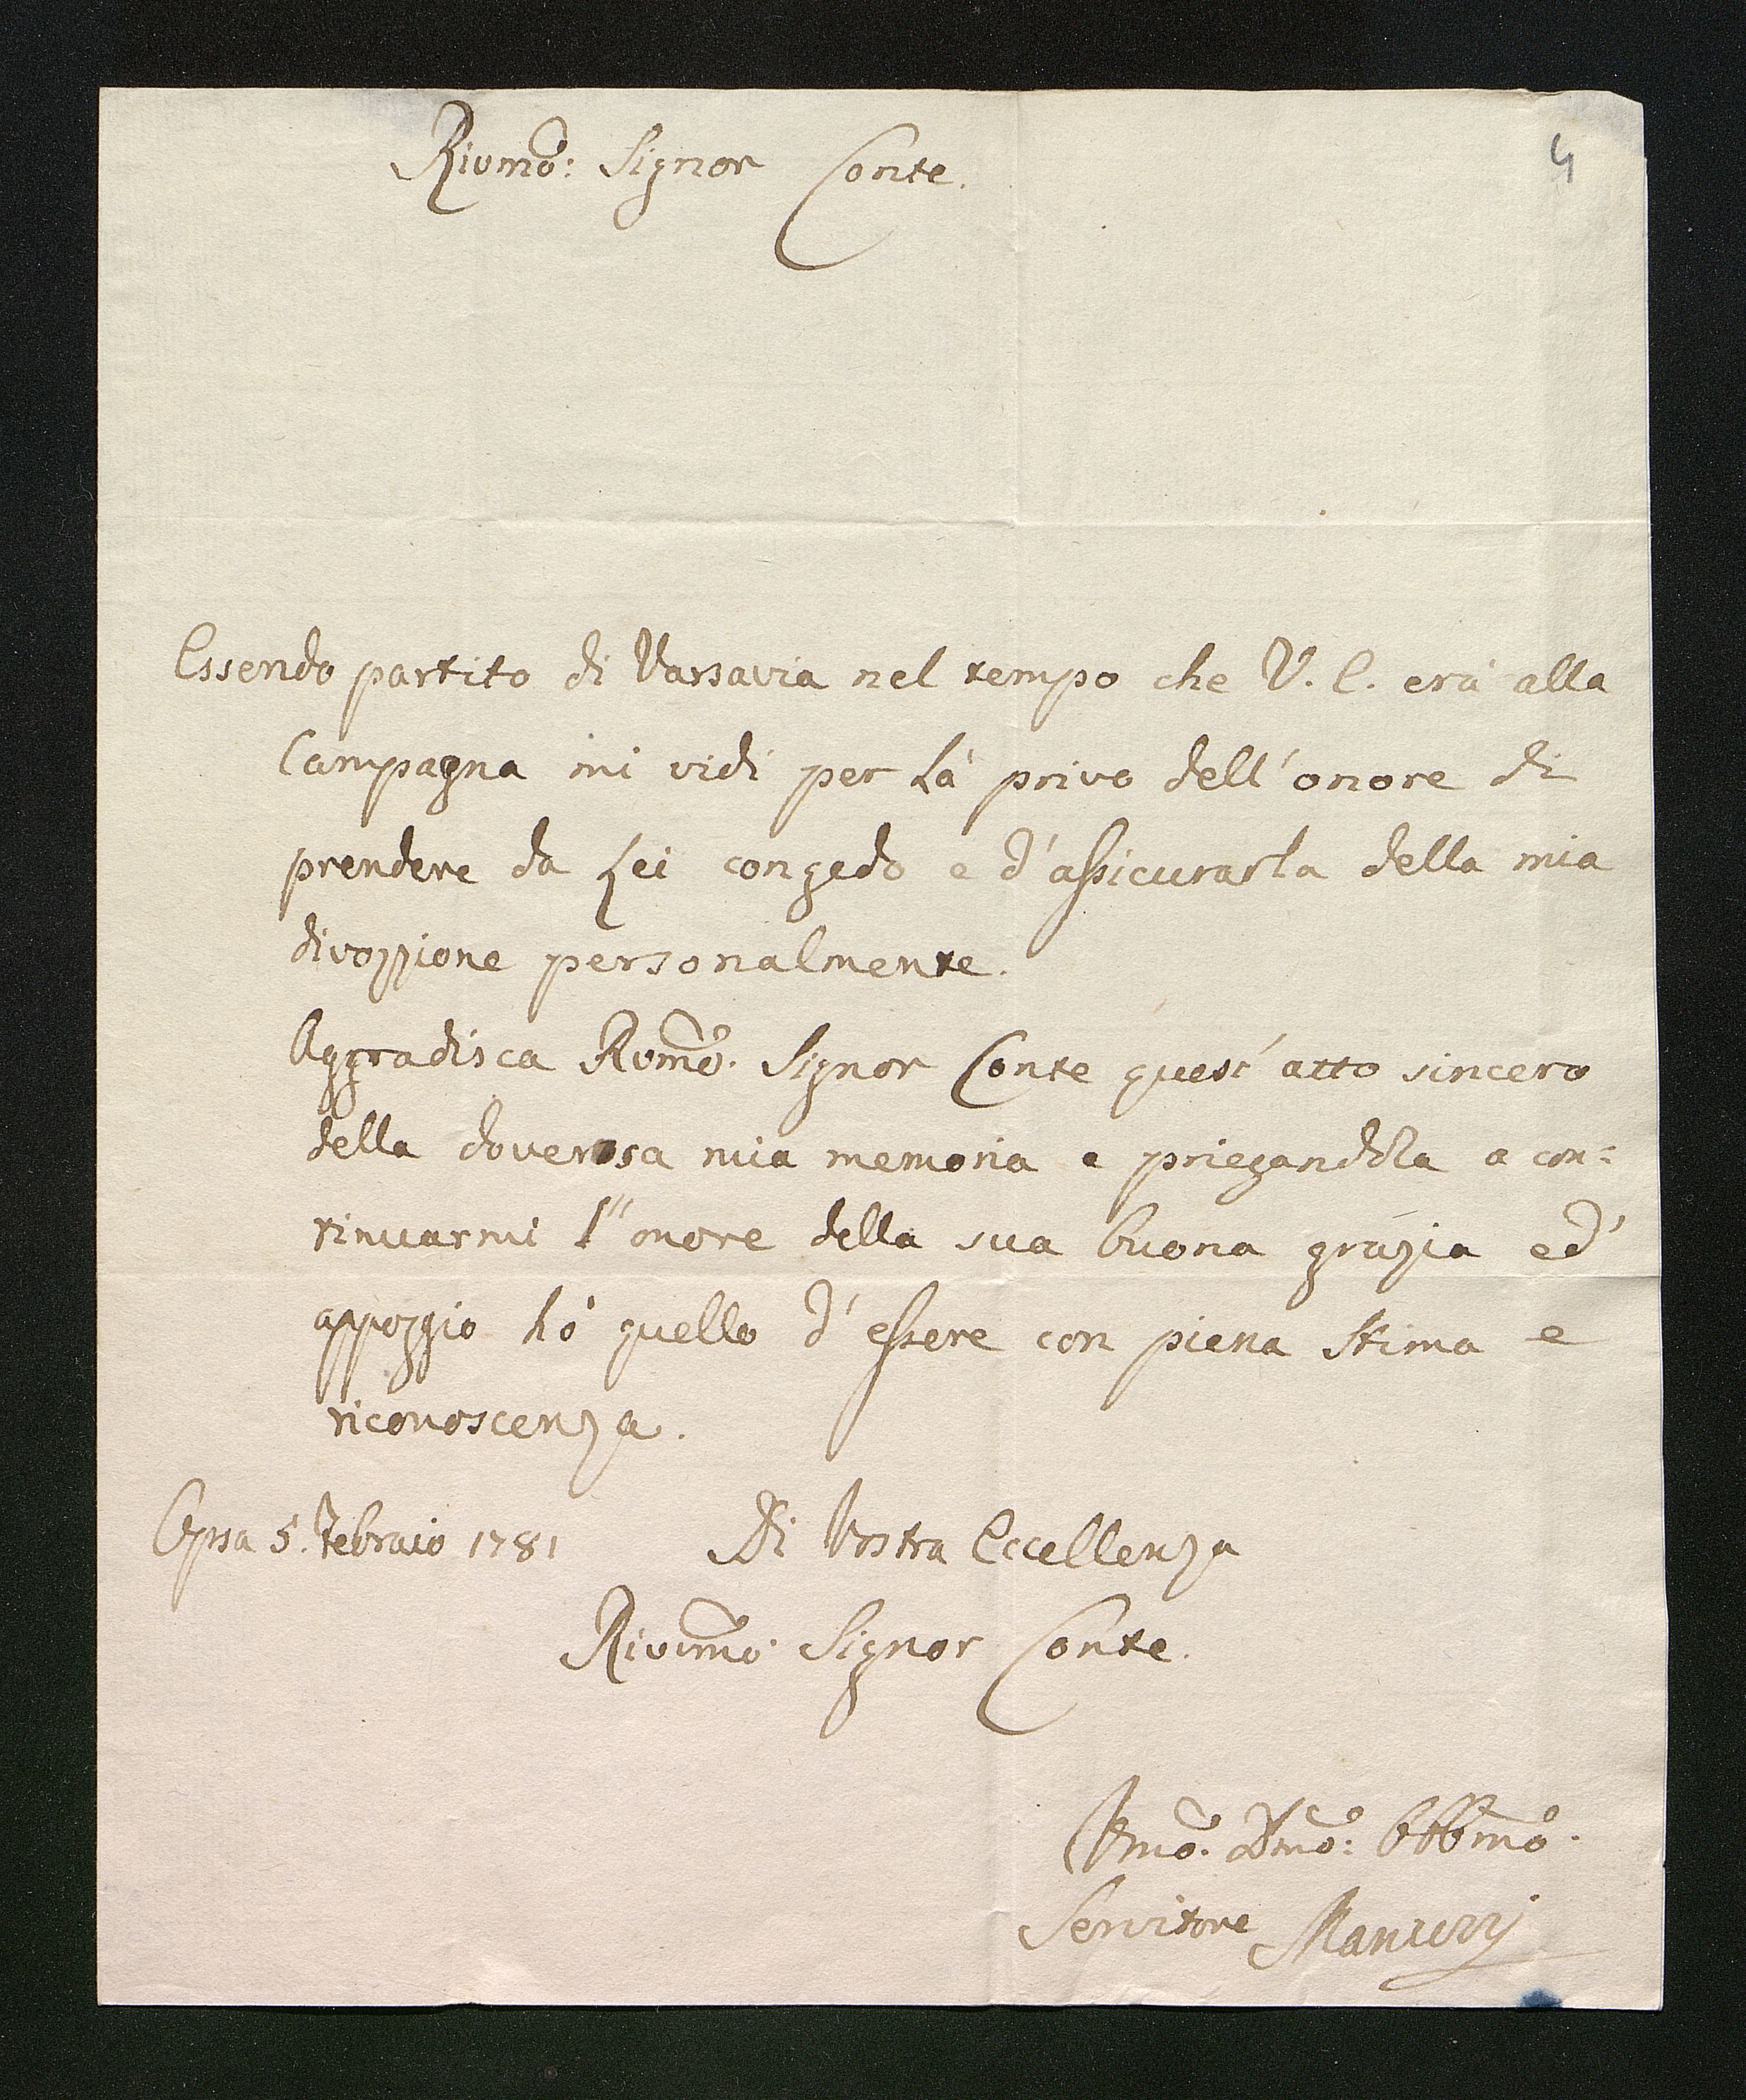 4
Rivmo: Signor Conte.
Essendo partito di Varsavia nel tempo che V. E. erà alla
Campagna mi vidi per là privo dell'onore di
prendere da Lei congedo e d'assicurarla della mia
divozzione personalmente.
Aggradisca Rvmo. Signor Conte quest'atto sincero
della doverosa mia memoria e priegandola a con:
tinuarmi l'onore della sua buona grazia ed'
appoggio hò quello d'essere con piena stima e
riconoscenza.
Opsa 5. Febraio 1781 Di Vostra Eccellenza
Rivimo Signor Conte.
Vmo. Dmo: Obbmo.
Servitore Manuzzi